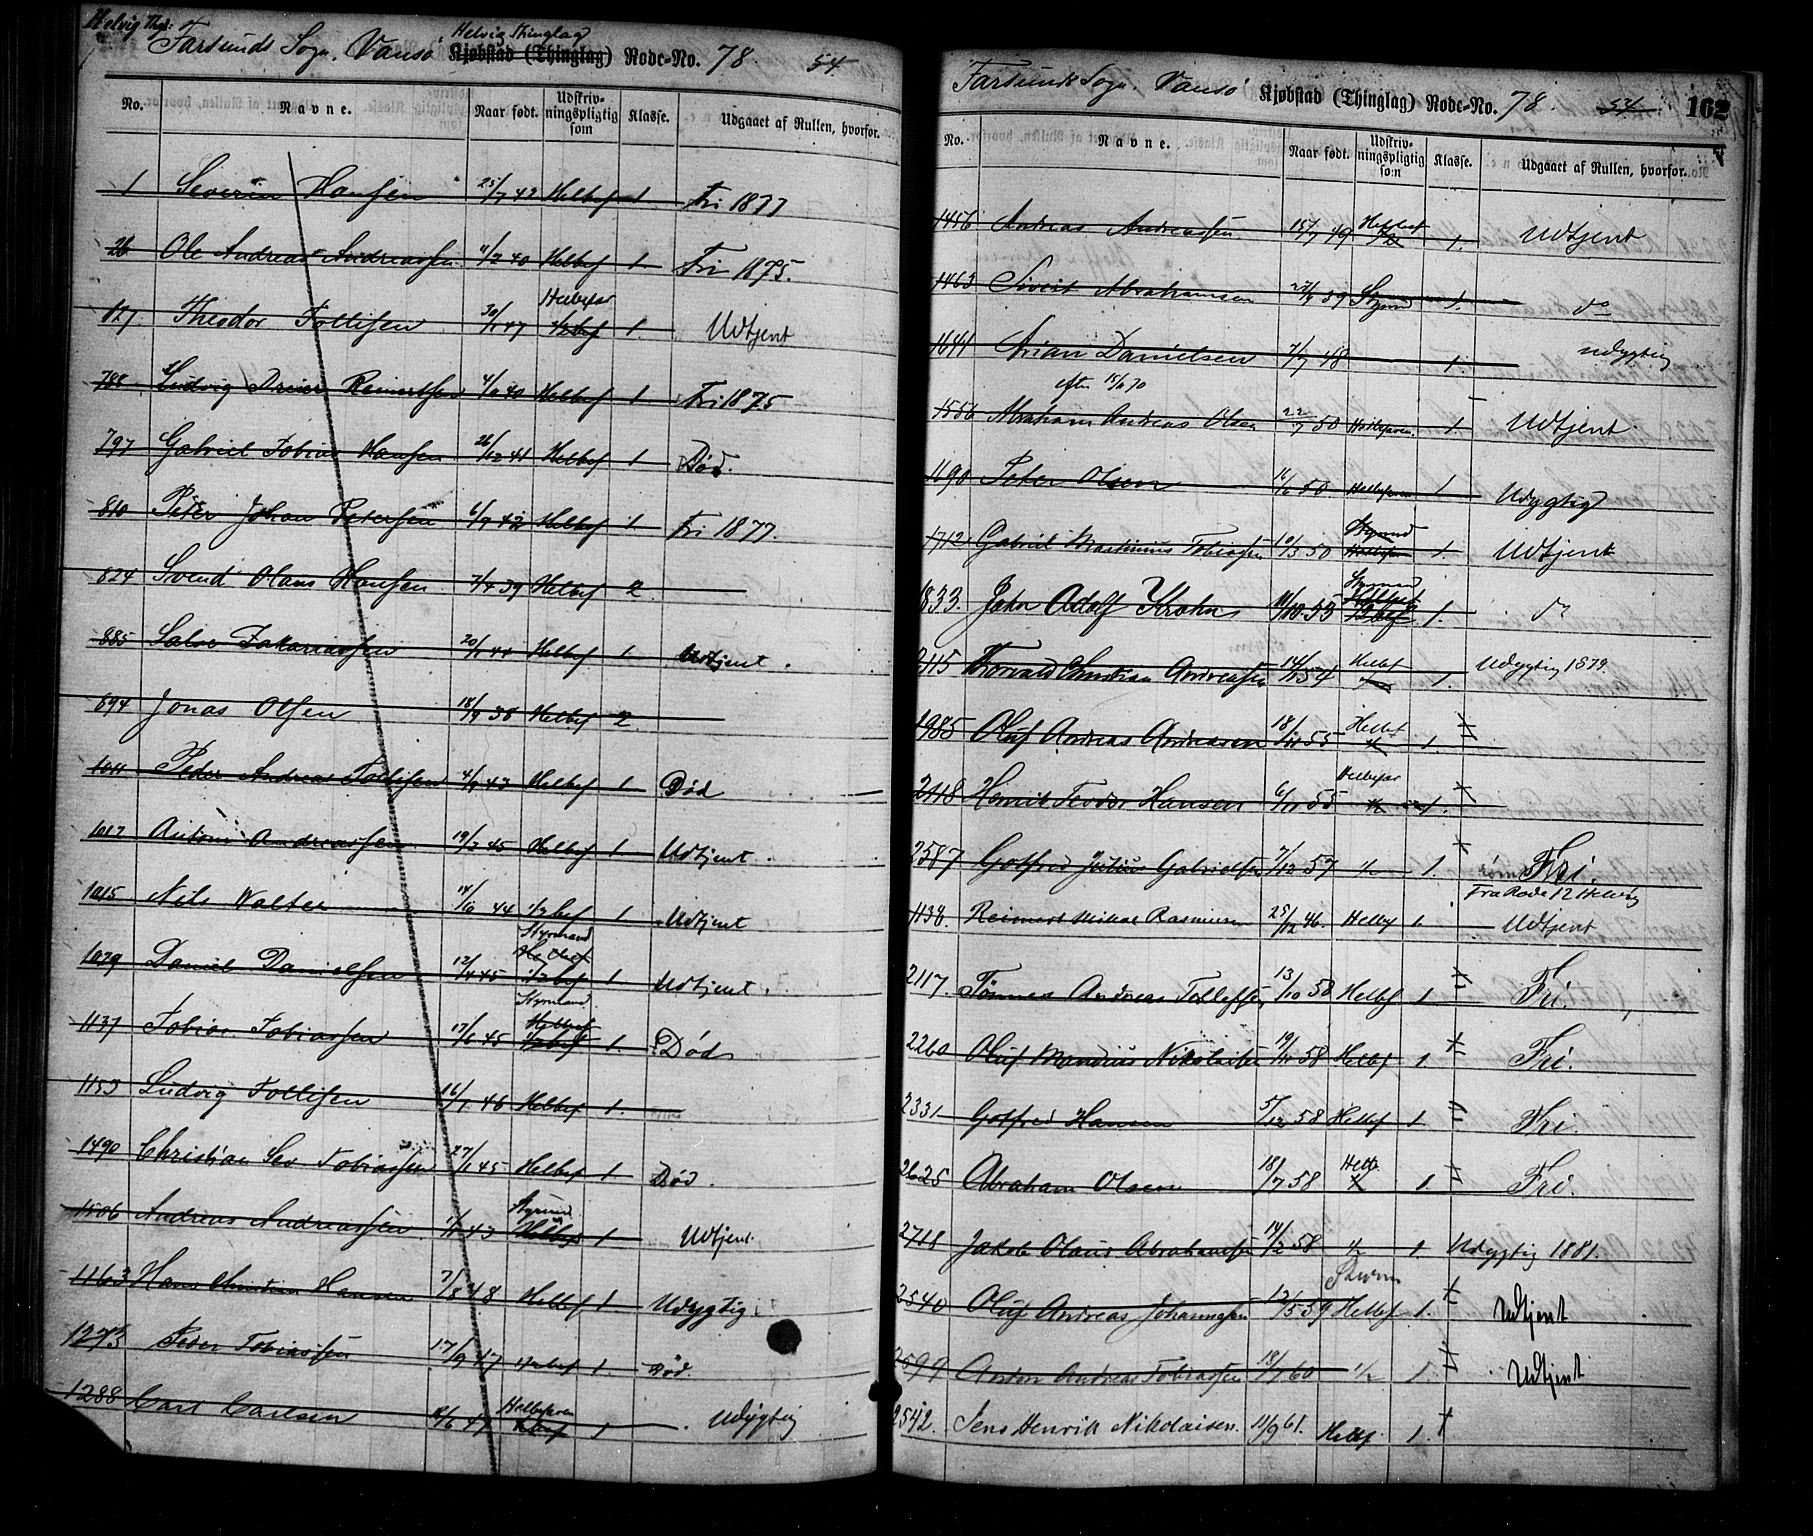 Helvig Thgl:
Farsunds Sogn. Vansø, Helvig Thinglag
Kjøbstad (Thinglag) Rode-No. 78. 54
No. Navne. Naar født. Udskrivningspligtig som Klasse. Udgaaet af Rullen, hvorfor.
1 Severin Hansen 25/7 42 Helbef 1 Fri 1877
26 Ole Andreas Andreassen 11/2 40 Helbef 1 Fri 1875.
127. Theodor Tollisen 30/1 47 Helbefar 1/2bef 1. Udtjent
788 Ludvig Dreier Reinertsen 4/6 40 Helbef 1 Fri 1875
797 Gabriel Tobias Hansen 26/12 41 Helbef 1 Død.
810 Peter Johan Petersen 6/9 42 Helbef 1 Fri 1877.
824 Svend Olaus Hansen 7/4 39 Helbef 2.
885 Salve Zakariassen 20/1 44 Helbef 1 Udtjent.
894 Jonas Olsen 18/9 38 Helbef 2
1011 Peder Andreas Tollisen 4/9 43 Helbef 1 Død
1012 Anton Andreassen 19/2 45 Helbef 1. Udtjent.
1015 Nils Walter 14/6 44 1/2bef 1 Udtjent
1029 Daniel Danielsen 12/4 45 Styrmand Helbef 1/2bef 1 Udtjent.
1137 Tobias Tobiassen 17/6 45 Styrmand Helbef 1/2bef 1. Død
1153 Ludvig Tollisen 16/7 46 Helbef 1.
1490 Christian Sev Tobiassen 27/6 45 Helbef 1 Død.
1506 Andreas Andreassen 43 Styrmd Helbef 1 Udtjent.
1163 Hans Christian Hansen 7/8 48 Helbef 1 Udygtig
1273 Peder Tobiassen 17/9 47 1/2bef 1. Død.
1288 Carl Carlsen 47 Helbefaren 1/2bef 1 Udygtig
Farsunds Sogn. Vansø Kjøbstad (Thinglag) Rode-No. 78. 54 162
No. Navne. Naar født. Udskrivningspligtig som Klasse. Udgaaet af Rullen, hvorfor.
1456 Andreas Andreassen 15/7 49 Helbef 1/2 1. Udtjent
1463 Sivert Abrahamsen 39 Styrmd 1. do
1641 Arian Danielsen 7/7 48 1. Udygtig
efter 15/11 70
1556 Abraham Andreas Olsen 22/7 50 Helbefaren 1. Udtjent
1690 Peter Olsen 16/6 50 Helbefaren 1 Udygtig
1712 Gabriel Martinius Tobiassen 10/3 50 Styrmd Helbefaren 1. Udtjent
1833. John Adolf Krohn 11/10 53 Styrmand Helbef 1/2bef 1. do
2115 Thorvald Christian Andreassen 14/ 54 Helbef 1/2 1. Udygtig 1879.
1985 Oluf Andreas Andreasen 18/11 55 Helbef 1/2 1.
2118 Henrik Teodor Hansen 6/11 55 Helbefar 1/2 1.
2587 Gotfred Julius Gabrielsen 7/12 57 1/2 1. Fri.
Fra Rode 12 Helvig
1138. Reinert Mikal Rasmusen 25/12 46. Helbef 1. Udtjent
2117. Tønnes Andreas Tollefsen 13/10 58 Helbef 1 Fri.
2260 Oluf Mandius Nikolaisen 19/11 58 Helbef 1 Fri.
2331 Gotfred Hansen 5/12 58 Helbef 1 Fri.
2625 Abraham Olsen 18/7 58 Helb. 1/2 1. Fri.
2718 Jakob Olaus Abrahamsen 14/2 58 1/2 1. Udygtig 1881.
2540 Oluf Andreas Johannesen 12/5 59 Helbef 1. Udtjent
2599 Anton Andreas Tobiassen 18/7 60 1/2 1. Udtjent
2542. Jens Henrik Nikolaisen. 11/9 61. Helbf. 1.